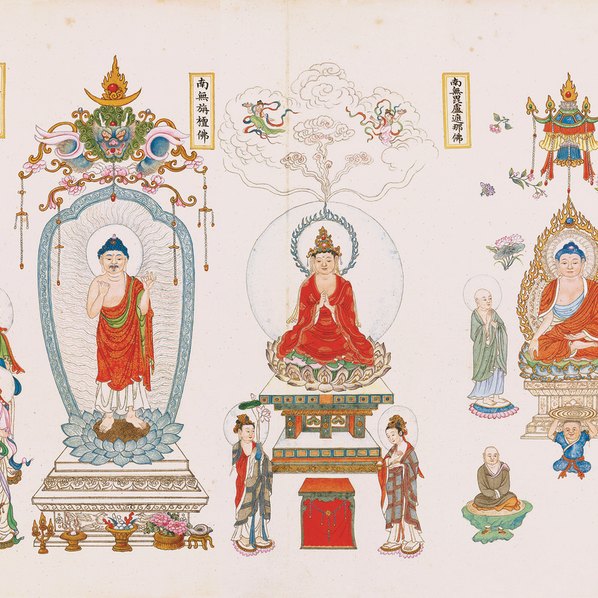 南無毘盧遮那佛
南無旃檀佛